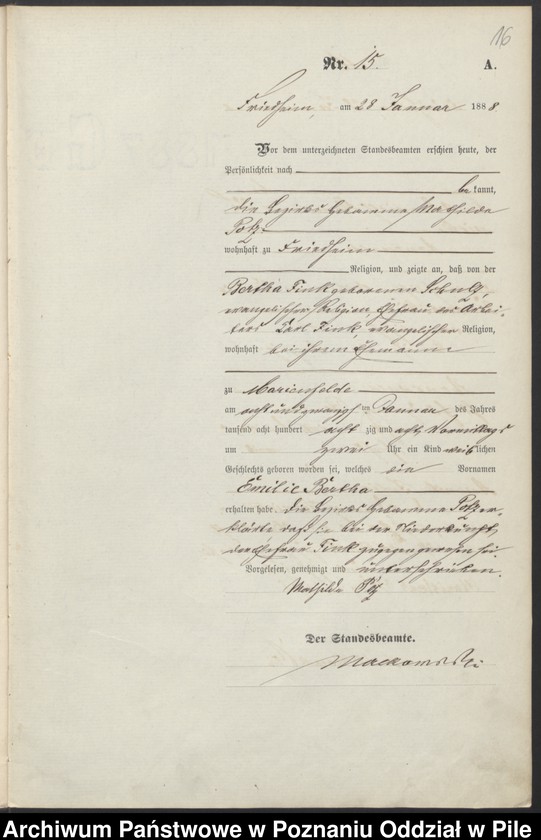 16
Nr. 15. A.
Friedheim, am 28 Januar 1888
Vor dem unterzeichneten Standesbeamten erschien heute, der
Persönlichkeit nach
bekannt,
die Bezirks Hebamme Mathilde
wohnhaft zu Friedheim
Religion, und zeigte an, daß von der
Bertha Fink geborenen Schulz,
evangelischer Religion Ehefrau des Arbei-
ters Karl Fink, evangelischer Religion,
wohnhaft bei ihrem Ehemanne
zu Marienfelde
am achtundzwanzigsten Januar des Jahres
tausend acht hundert acht zig und acht, Vormittags
um zwei Uhr ein Kind weiblichen
Geschlechts geboren worden sei, welches die Vornamen
Emilie Bertha
erhalten habe. Die Bezirks Hebamme er-
klärte daß sie bei der Niederkunft
der Ehefrau Fink zugegen gewesen sei.
Vorgelesen, genehmigt und unterschrieben.
Mathilde
Der Standesbeamte.
Archiwum Państwowe w Poznaniu Oddział w Pile